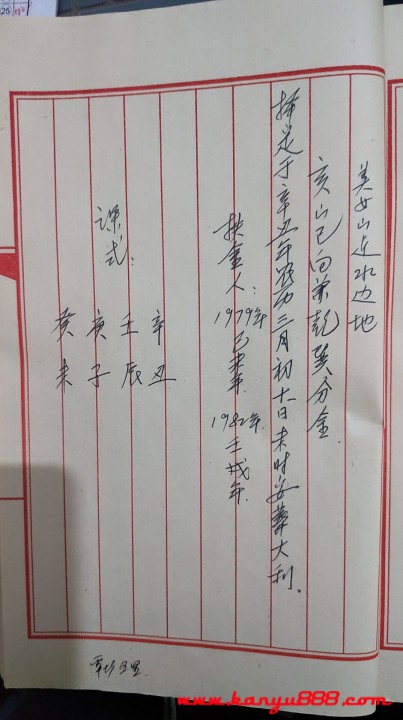 美女山近水边地
亥山巳向兼乾巽分金.
择定于辛丑年阴历三月初十日未时安葬大利.
扶金人:1979年己未年 1982年壬戌年
课式:
辛丑
壬辰
庚子
癸未
www.kanyu888.com